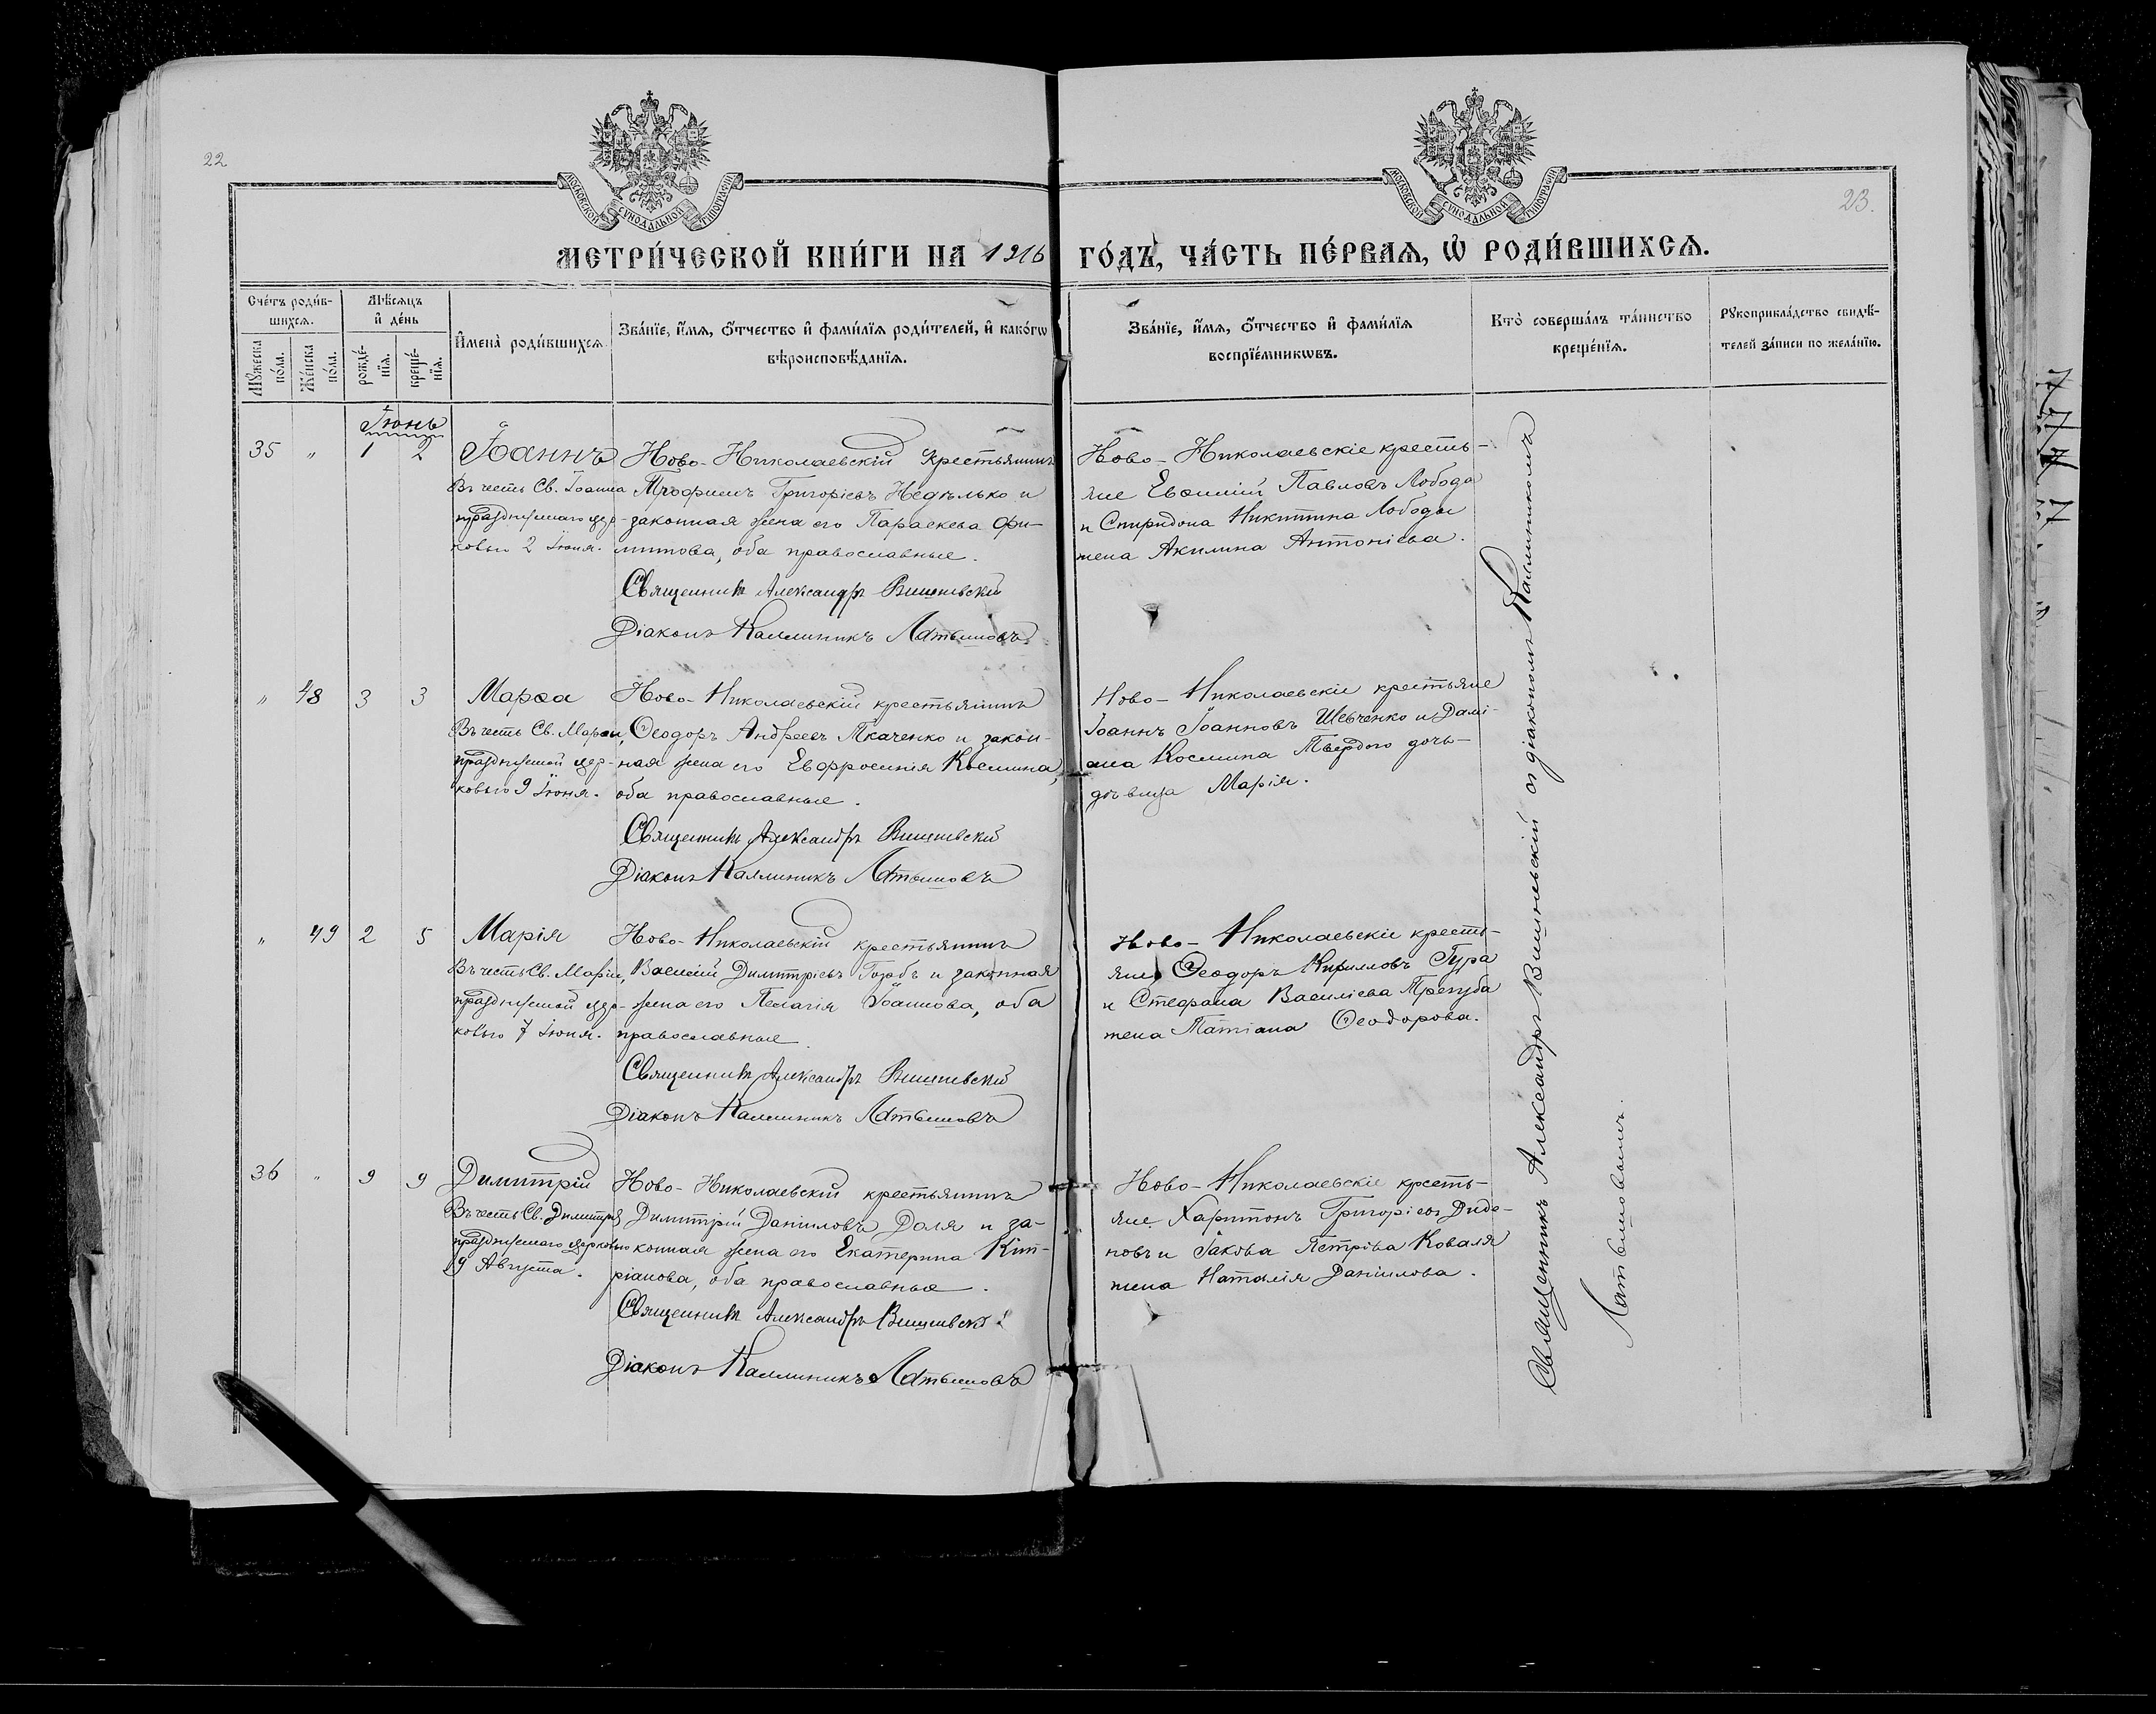 22
23.
МОСКОВСКОЙ СѴНОДАЛЬНОЙ ТИПОГРАФІИ
МОСКОВСКОЙ СѴНОДАЛЬНОЙ ТИПОГРАФІИ
МЕТРИ́ЧЕСКОЙ КНИ́ГИ НА 1916 ГО́ДЪ, ЧА́СТЬ ПЕ́РВАѦ, Ѡ҆ РОДИ́ВШИХСѦ.
Сче́тъ роди́в-
шихсѧ.
Мꙋ́жеска по́ла.
Же́нска по́ла.
Мѣ́сѧцъ
и҆ де́нь
рожде́-
нїѧ.
креще́-
нїѧ.
И҆мена̀ роди́вшихсѧ.
Зва́нїе, и҆́мѧ, ѻ҆́тчество и҆ фамилїѧ роди́телей, и҆ како́гѡ
вѣроисповѣ́данїѧ.
Зва́нїе, и҆́мѧ, ѻ҆́тчество и҆ фамилїѧ
воспрїе́мникѡвъ.
Кто̀ соверша́лъ та́инство
креще́нїѧ.
Рꙋкоприкла́дство свидѣ́-
телей за́писи по жела́нїю.
Іюнь
35 " 1 2
Іоаннъ
Въ честь Св. Іоанна
празднуемаго цер-
ковью 2 Іюня.
Ново-Николаевскій крестьянинъ
Трофимъ Григоріевъ Недѣлько и
законная жена его Параскева Фи-
липпова, оба православные.
Священникъ Александръ Вишневскій
Діаконъ Каллиникъ Латышовъ
Ново-Николаевскіе кресть-
яне Евѳимій Павловъ Лобода
и Спиридона Никитина Лободы
жена Акилина Антоніева.
" 48 3 3
Марѳа
Въ честь Св. Марѳы,
празднуемой цер-
ковью 9 Іюня.
Ново-Николаевскій крестьянинъ
Ѳеодоръ Андреевъ Ткаченко и закон-
ная жена его Евфросинія Космина,
оба православные.
Священникъ Александръ Вишневскій
Діаконъ Каллиникъ Латышовъ
Ново-Николаевскіе крестьяне
Іоаннъ Іоанновъ Шевченко и Дамі-
ана Космина Твердого дочь-
дѣвица Марія.
" 49 2 5
Марія
Въ честь Св. Маріи,
празднуемой цер-
ковью 7 Іюня.
Ново-Николаевскій крестьянинъ
Василій Димитріевъ Горбъ и законная
жена его Пелагія Іоаннова, оба
православные.
Священникъ Александръ Вишневскій
Діаконъ Каллиникъ Латышовъ
Ново-Николаевскіе кресть-
яне Ѳеодоръ Кирилловъ Гура
и Стефана Василіева Трегуба
жена Татіана Ѳеодорова.
36 " 9 9
Димитрій
Въ честь Св. Димитрія
празднуемаго церковью
9 Августа.
Ново-Николаевскій крестьянинъ
Димитрій Даніиловъ Доля и за-
конная жена его Екатерина Кип-
ріанова, оба православные.
Священникъ Александръ Вишневскій
Діаконъ Каллиникъ Латышовъ
Ново-Николаевскіе кресть-
яне Харитонъ Григоріевъ Диде-
новъ и Іакова Петрова Коваля
жена Наталія Даніилова.
Священникъ Александръ Вишневскій съ діакономъ Каллиникомъ
Латышовымъ.